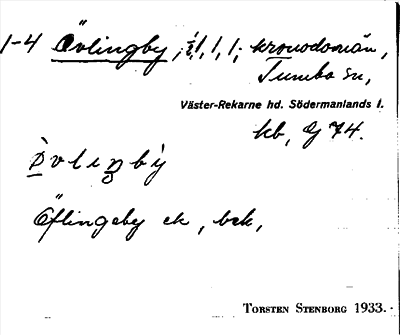 1-4 Övlingby, ½, 1, 1, 1; kronodomän,
Tumbo sn,
Väster-Rekarne hd. Södermanlands l.
kb, G 74.
Öflingeby ek, bek,
TORSTEN STENBORG 1933.